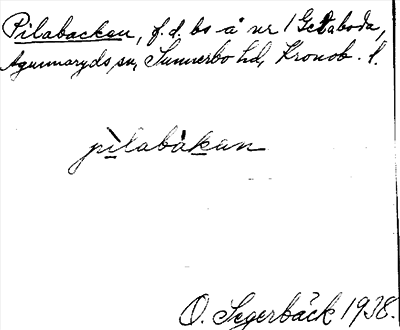 Pilabacken, f.d. bs å nr 1 Getaboda,
Agunnaryds sn, Sunnerbo hd, Kronob. l.
pìlabàkan
O. Segerbäck 1938.